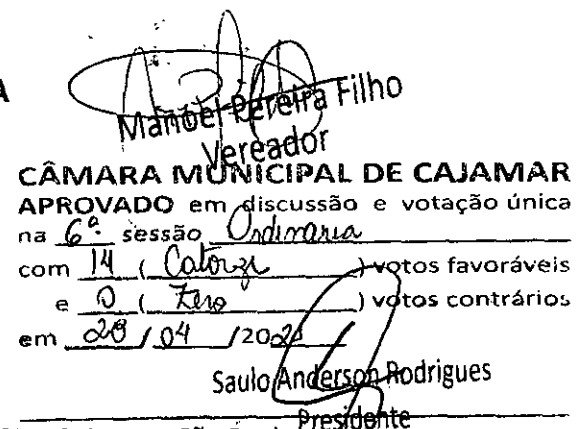 A
Manoel Pereira Filho
Vereador
CÂMARA MUNICIPAL DE CAJAMAR
APROVADO em discussão e votação única
na 6ª sessão Ordinaria
com 14 ( Catorze ) votos favoráveis
e 0 ( Zero ) votos contrários
em / 04 /202
Saulo Anderson Rodrigues
Presidente